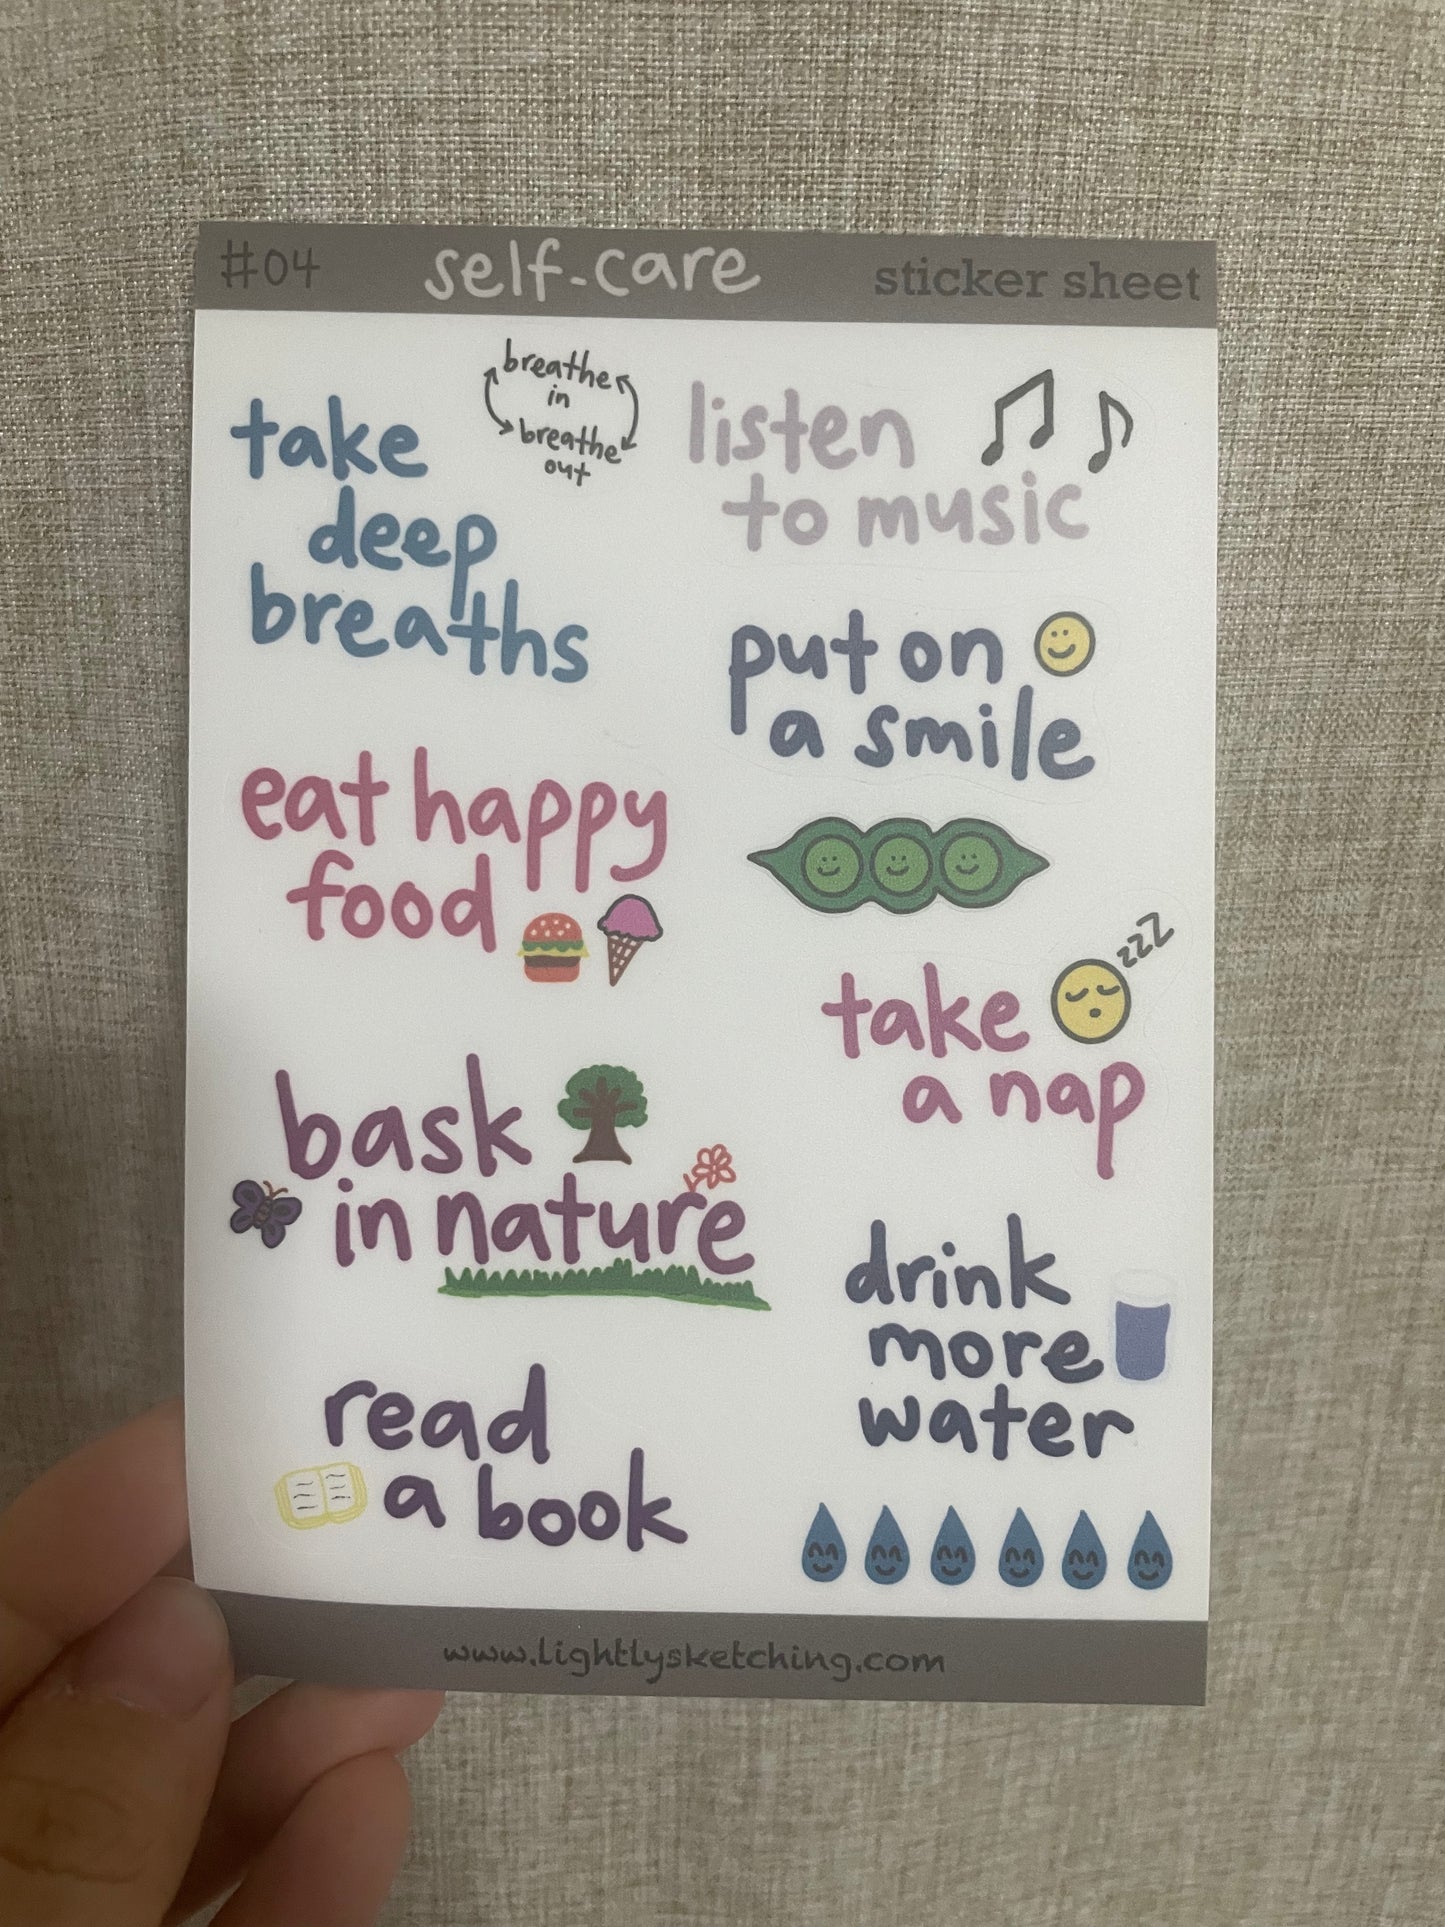 #04 self-care sticker sheet
take
deep
breaths
breathe
in
breathe
out
listen
to music
put on
a smile
eat happy
food
zzZ
take
a nap
bask
in nature
drink
more
water
read
a book
www.lightlysketching.com